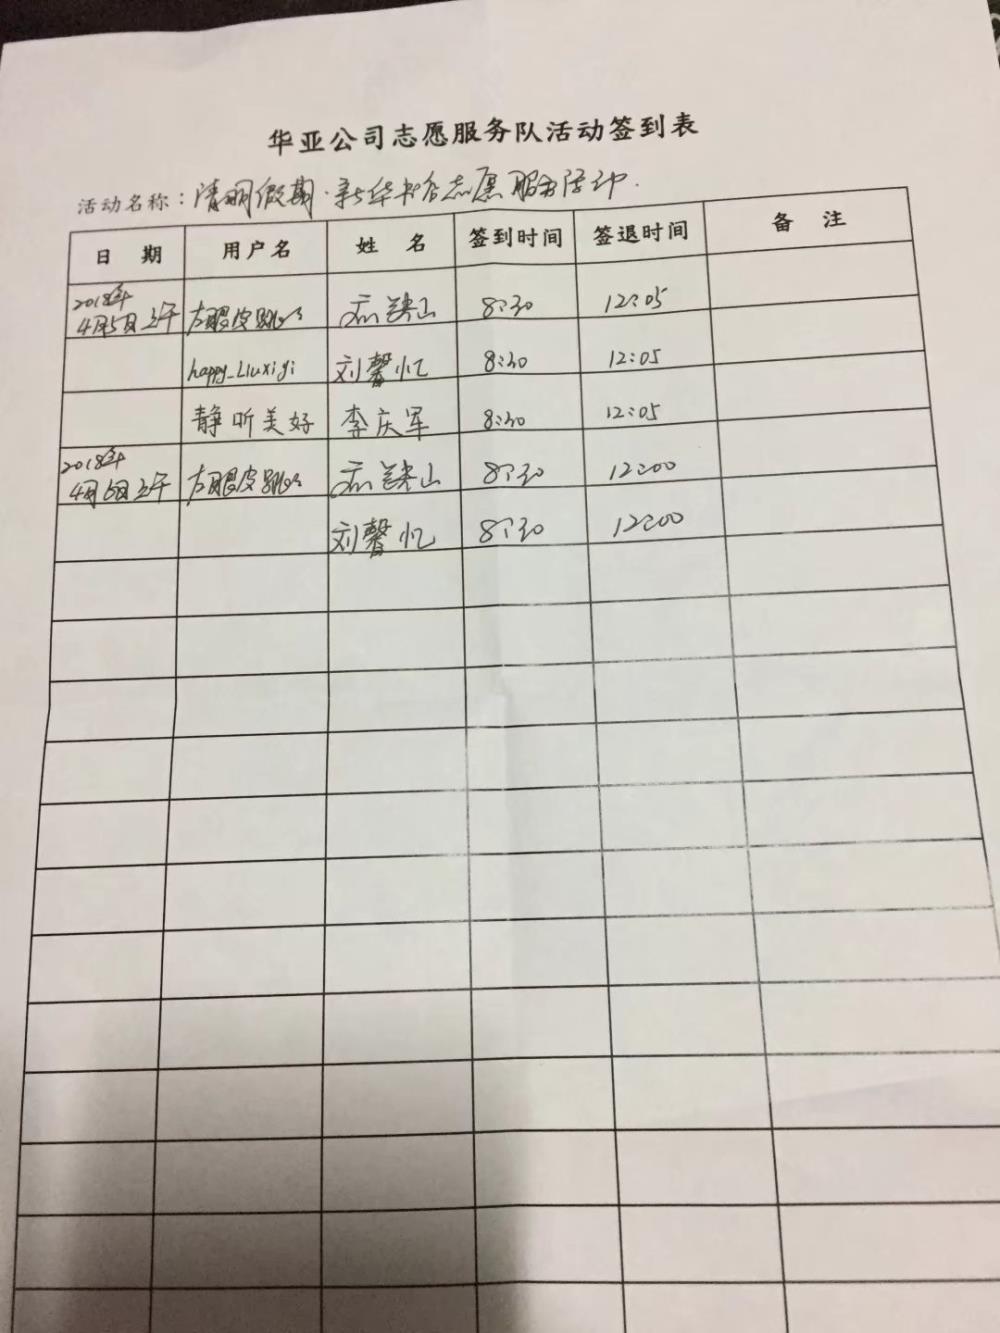 华亚公司志愿服务队活动签到表
活动名称：清明假期·新华书店志愿服务活动.
日 期 用户名 姓 名 签到时间 签退时间 备 注
2018年
4月5日上午 左眼皮跳 山 8:30 12:05
happy_Liuxiyi 刘馨忆 8:30 12:05
静听美好 李庆军 8:30 12:05
2018年
4月6日上午 左眼皮跳 山 8:30 12:00
刘馨忆 8:30 12:00